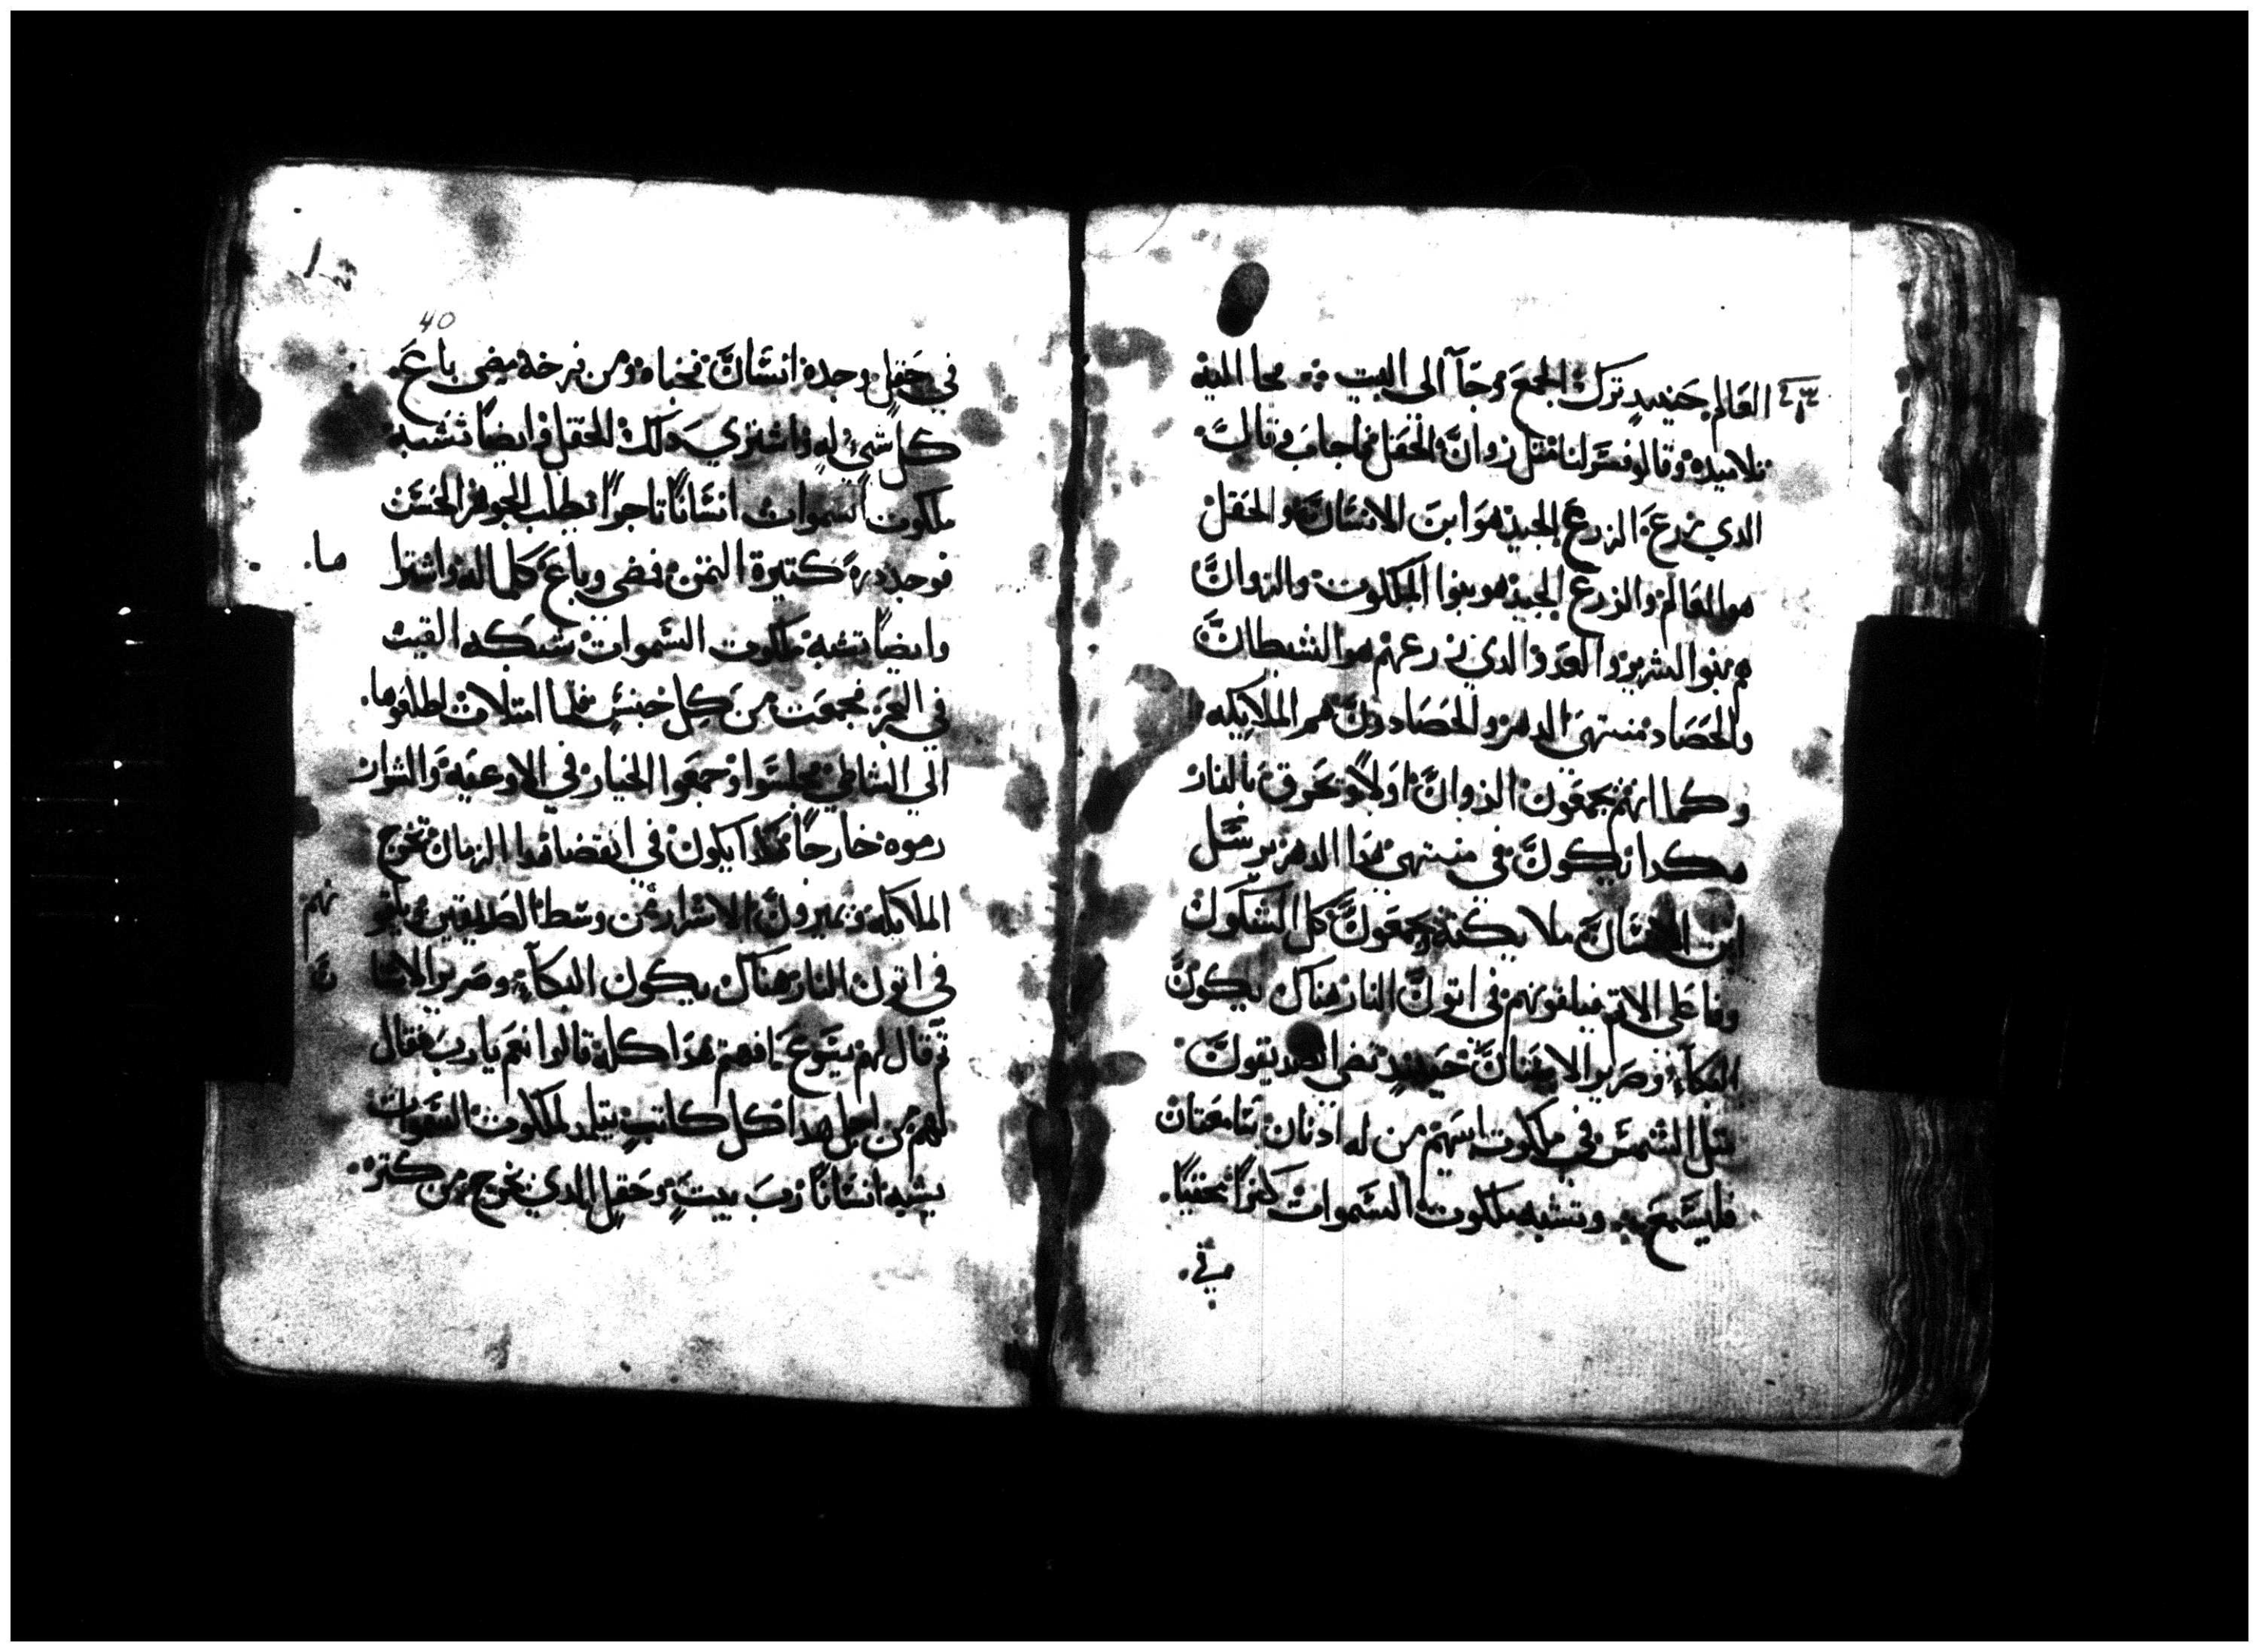 العالم حينيدٍ ترك الجمع وجآ الى البيت ⁘ فجا اليه
تلاميده وقالو فسر لنا مثل زوان الحقل فاجاب وقال
الدي زرع الزرع الجيد هو ابن الانسان والحقل
هو العالم والزرع الجيد هو بنوا الملكوت والزوان
هم بنوا الشرير والعدو الدي زرعهم هو الشيطان
والحصاد منتهى الدهر والحصادون هم الملايكه
وكما انهم يجمعون الزوان اولاً وتحرق بالنار
هكدا يكون في منتهى هدا الدهر يرسل
ابن الانسان ملايكته ويجمعون كل الشكوك
وفاعلى الاتم فيلقونهم في اتون النار هناك يكون
البكآء وصرير الاسنان حينيدٍ تضي الصديقون
متل الشمس في ملكوت ابيهم من له ادنان سامعتان
فليسمع ⁘ وتشبه ملكوت السموات كنزاً مخفيًا
في
40
في حقلٍ وجده انسان فخباه ومن فرحه مضى باع
كل شيءٍ له واشترى دلك الحقل وايضاً تشبه
ملكوت السموات انساناً تاجراً يطلب الجوهر الحسن
فوجد درةً كتيرة التمن فمضى وباع كلما له واشترا
ها
وايضاً تشبه ملكوت السموات شبكه القيت
في البحر فجمعت من كل جنسٍ فلما امتلات اطلعوها
الي الشاطي فجلسوا وجمعوا الخيار في الاوعيه والشرار
رموه خارجاً هكدا يكون في انقضا هدا الزمان تخرج
الملايكه ويميزون الاشرار من وسط الصديقين ويلقو
نهم
في اتون النار هناك يكون البكآء وصرير الاسنا
ن
تم قال لهم يسوع افهمتم هدا كله قالوا نعم يارب فقال
لهم من اجل هدا كل كاتبٍ يتلمد لملكوت السموات
يشبه انساناً رب بيتٍ وحقلٍ الدي يخرج من كنزه